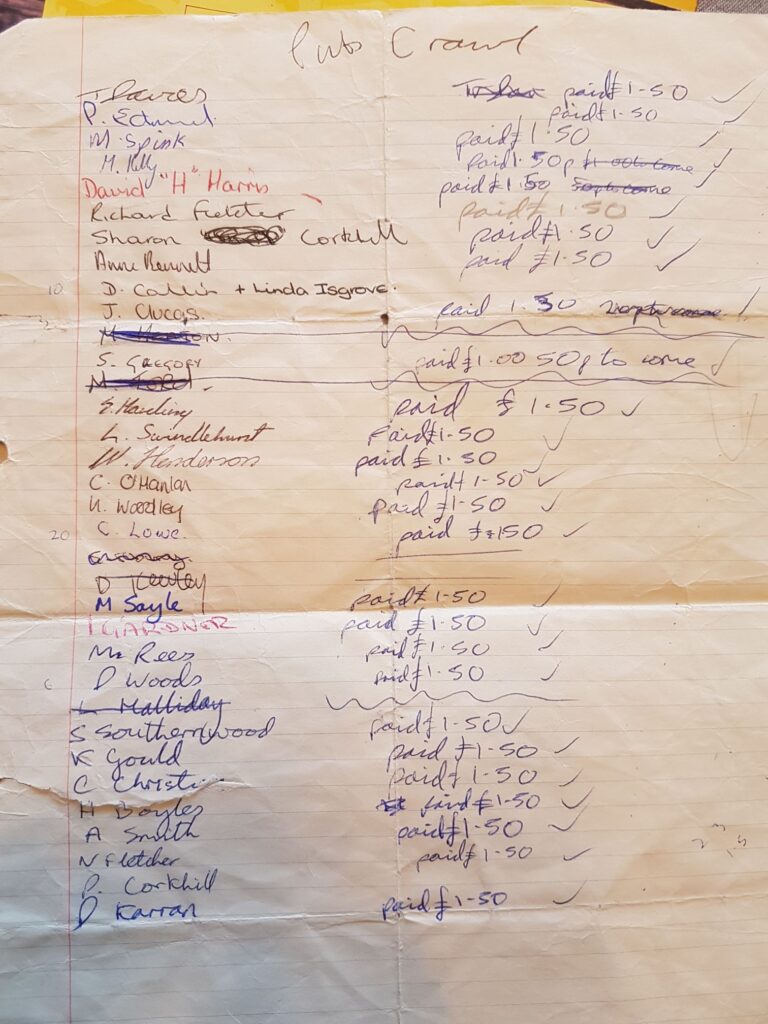 Pub Crawl
T Davies paid £1-50 ✓
P. paid £1-50 ✓
M. Spink paid £1.50 ✓
M. Kelly paid 1.50p £1.00 to come ✓
David "H" Harris paid £1.50 50p to come ✓
Richard Fletcher paid £1.50 ✓
Sharon Corkhill paid £1.50 ✓
Anne Bennett paid £1.50 ✓
10 D. + Linda Isgrove.
J. Clucas. paid 1.50 ✓
S. GREGORY paid £1.00 50p to come ✓
M. FORD.
S. Harding paid £1.50 ✓
L. Swindlehurst Paid £1-50 ✓
W. Henderson paid £1.50 ✓
C. O'Hanlan paid £1-50 ✓
N. Woodley paid £1-50 ✓
20 C. Lowe. paid £150 ✓
D Kewley
M Sayle paid £1-50 ✓
I GARDNER paid £1.50 ✓
Mr Rees paid £1.50 ✓
D Woods paid £1.50 ✓
L Halliday
S Southernwood paid £1-50 ✓
K Gould paid £1.50 ✓
C Christi paid £1.50 ✓
H Boyles paid £1-50 ✓
A Smith paid £1.50 ✓
N Fletcher paid £1-50 ✓
P. Corkhill
D Karran paid £1-50 ✓